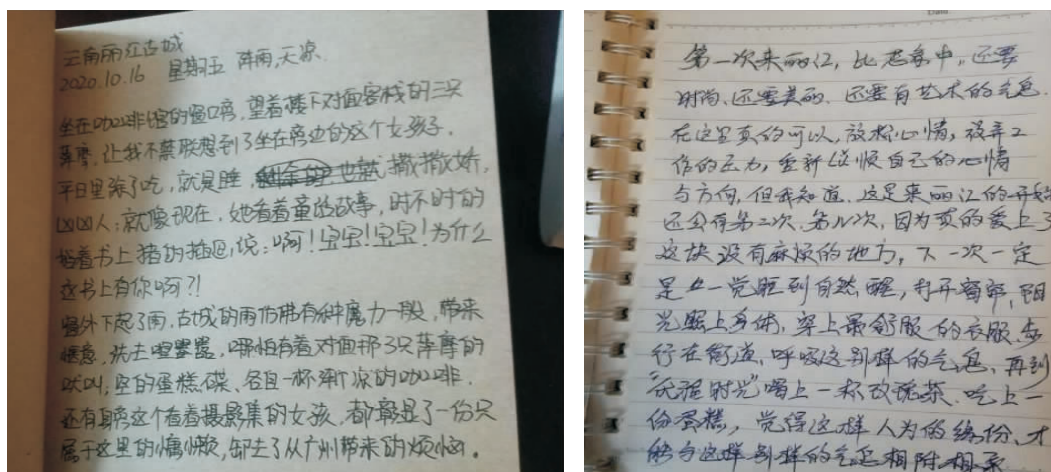 云南丽江古城
2020.10.16 星期五 阵雨,天凉.
坐在咖啡馆的窗口旁,望着楼下对面客栈的三只
萨摩,让我不禁联想到了坐在旁边的这个女孩子.
平日里除了吃,就是睡,撒撒娇,
凶凶人;就像现在,她看着童话故事,时不时的
指着书上猪的插画,说:啊!宝宝!宝宝!为什么
这书上有你啊?!
窗外下起了雨,古城的雨仿佛有种魔力一般,带来
惬意,洗去喧嚣,哪怕有着对面那3只萨摩的
吠叫,空的蛋糕碟、各自一杯剩下凉的咖啡.
还有身旁这个看着摄影集的女孩,都彰显了一份只
属于这里的慵懒,卸去了从广州带来的烦恼。
第一次来丽江,比想象中,还要
时尚、还要美丽、还要有艺术的气息.
在这里真的可以,放松心情,放弃工
作的压力,重新认识自己的心情
与方向,但我知道,这是来丽江的开始
还会有第二次、第N次,因为真的爱上了
这块没有麻烦的地方,下一次一定
是一觉睡到自然醒,打开窗帘,阳
光照上身体,穿上最舒服的衣服,步
行在街道、呼吸这别样的气息,再到
时光"喝上一杯玫瑰茶、吃上一
份蛋糕,觉得这样人为的缘份,才
能与这样别样的气息相附相承